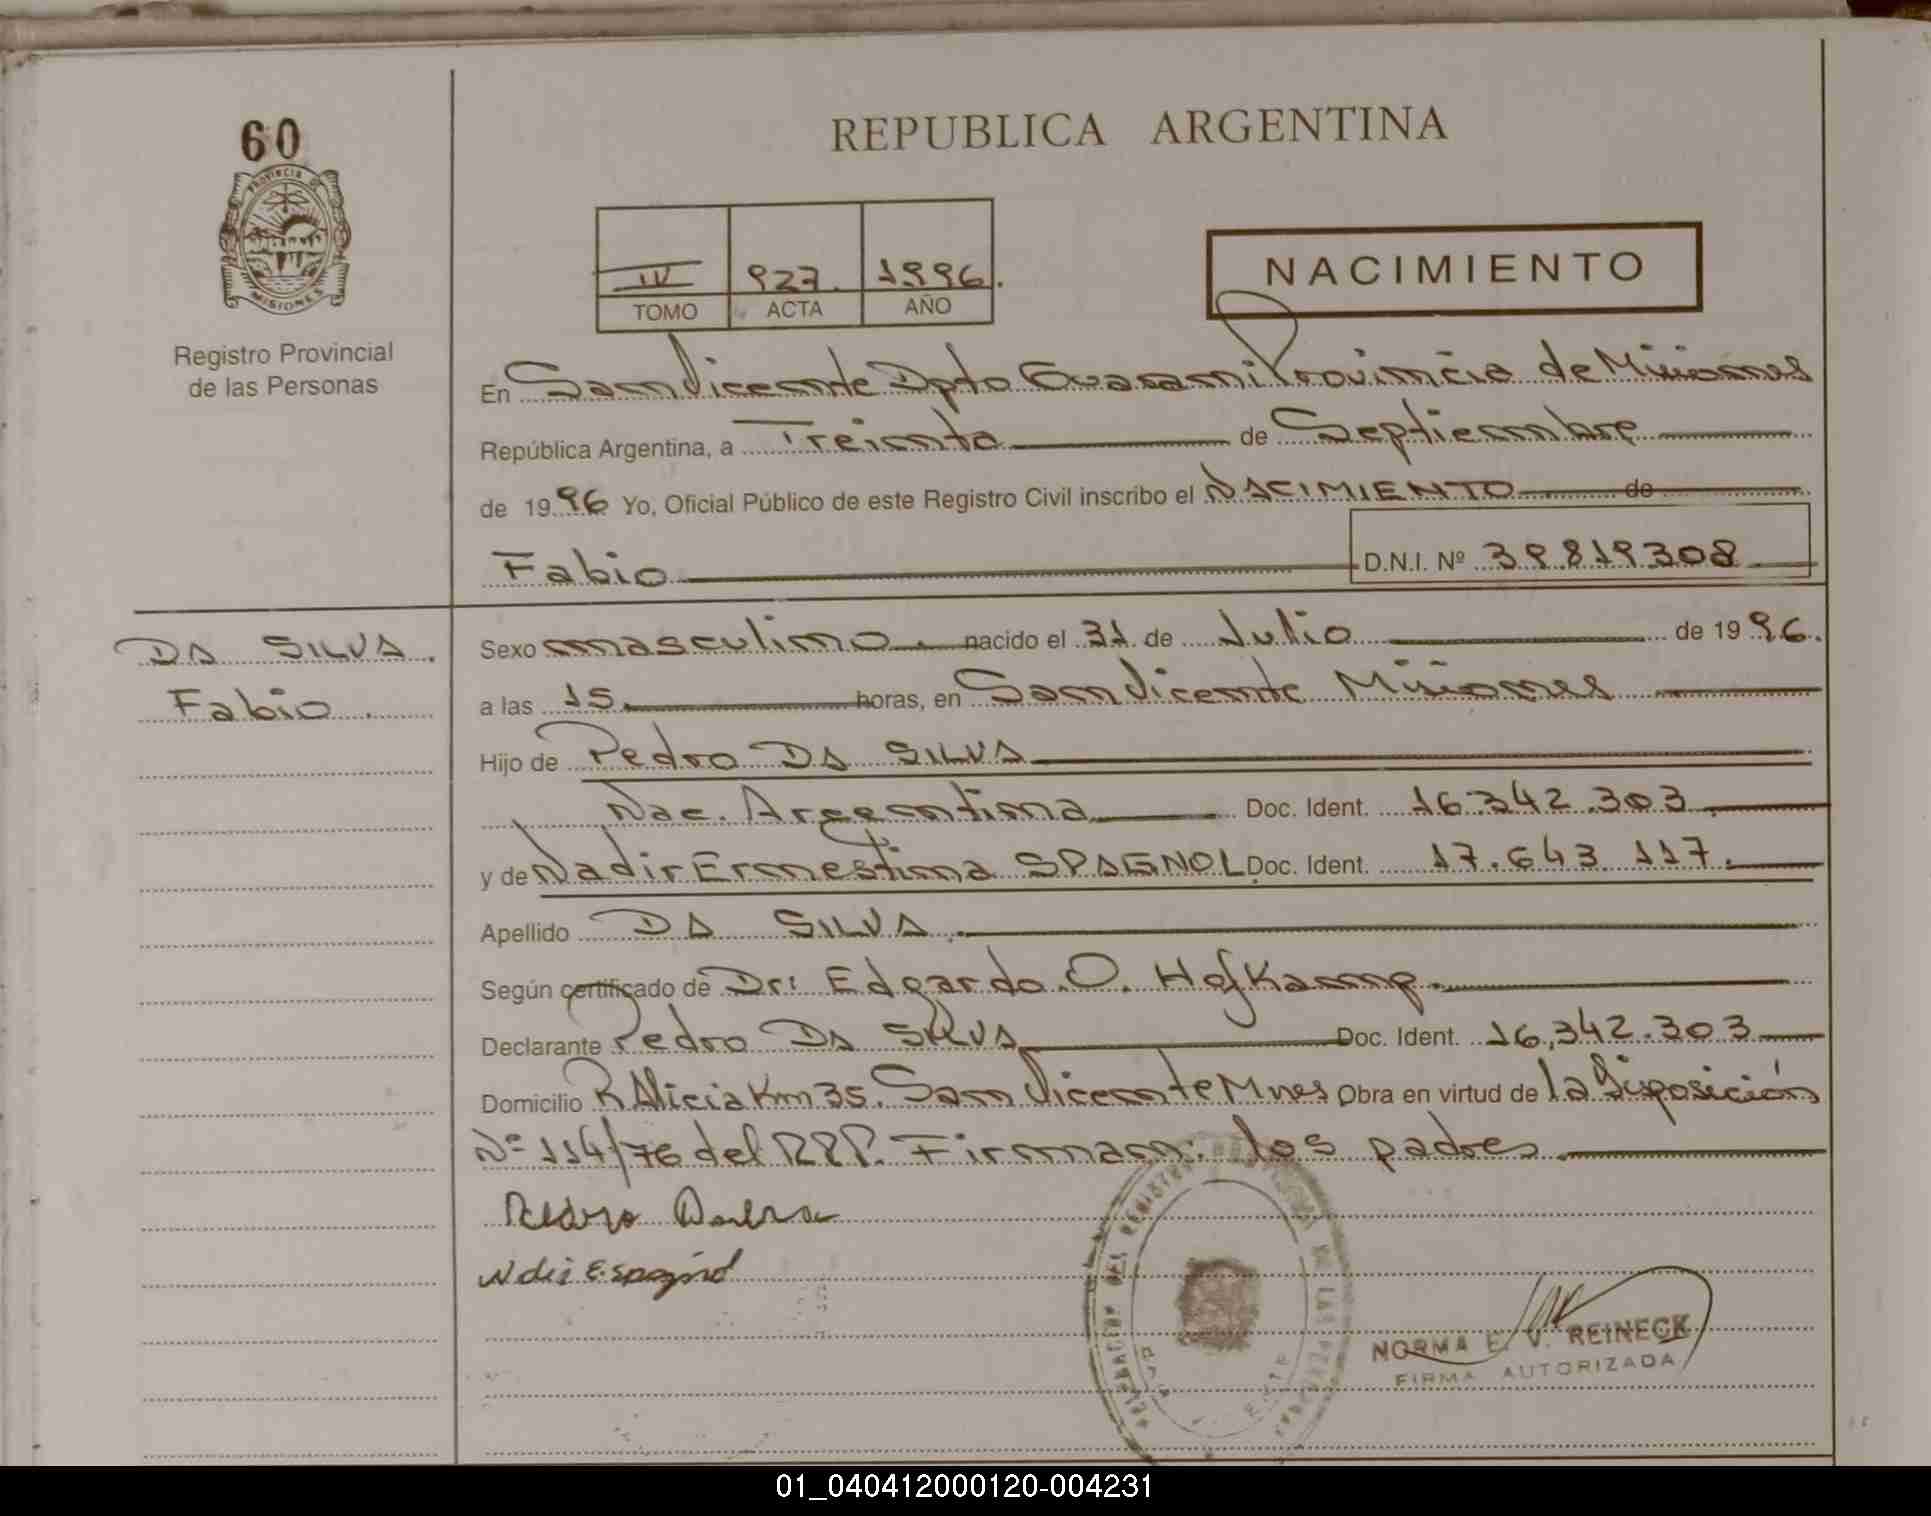 60
PROVINCIA DE
MISIONES
Registro Provincial
de las Personas
REPUBLICA ARGENTINA
IV 927. 1996.
TOMO ACTA AÑO
NACIMIENTO
En San Vicente Dpto Guarani Provincia de Misiones
República Argentina, a Treinta de Septiembre
de 1996 Yo, Oficial Público de este Registro Civil inscribo el NACIMIENTO de
Fabio D.N.I. Nº 39819308
DA SILVA.
Fabio
Sexo masculino. nacido el 31 de Julio de 1996.
a las 15 horas, en San Vicente Misiones
Hijo de Pedro DA SILVA
Nac. Argentina Doc. Ident. 16.342.303
y de Nadir Ernestina SPAGNOL Doc. Ident. 17.643.117.
Apellido DA SILVA.
Según certificado de Dr: Edgardo.O. Hofkamp.
Declarante Pedro DA SILVA Doc. Ident. 16,342.303
Domicilio R. Alicia Km 35. San Vicente Mnes Obra en virtud de la Disposición
Nº 114/76 del RPP. Firman: los padres
Pedro
NORMA E. V. REINECK
FIRMA AUTORIZADA
01_040412000120-004231